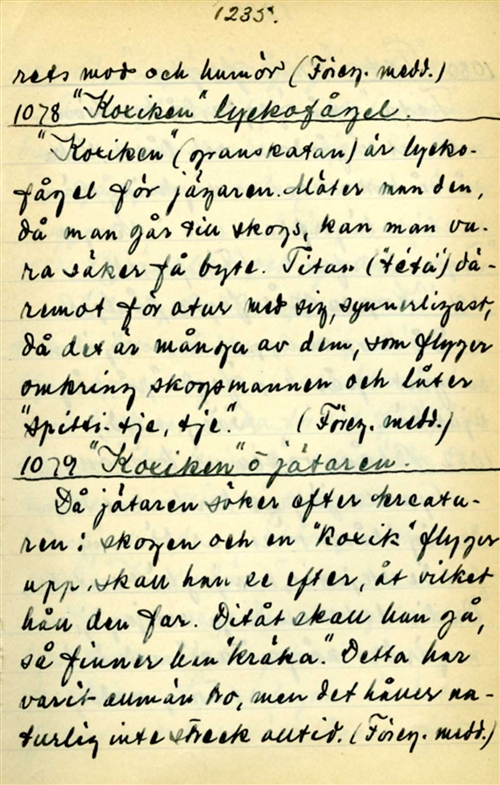 1235.
rets mod och humör (Föreg. medd.)
1078 "Koxiken" lyckofågel.
"Koxiken" (granskatan) är lycko-
fågel för jägaren. Möter man den,
då man går till skogs, kan man va-
ra säker få byte. Titan ("tétä") dä-
remot för otur med sig, synnerligast,
då det är många av dem, som flyger
omkring skogsmannen och låter
"spitti-tje, tje". (Föreg. medd.)
1079 "Koxiken" o jätaren.
Då jätaren söker efter kreatu-
ren i skogen och en "koxik" flyger
upp, skall han se efter, åt vilket
håll den far. Ditåt skall han gå,
så finner han "kräka". Detta har
varit allmän tro, men det håller na-
turlig inte streck alltid. (Föreg. medd.)